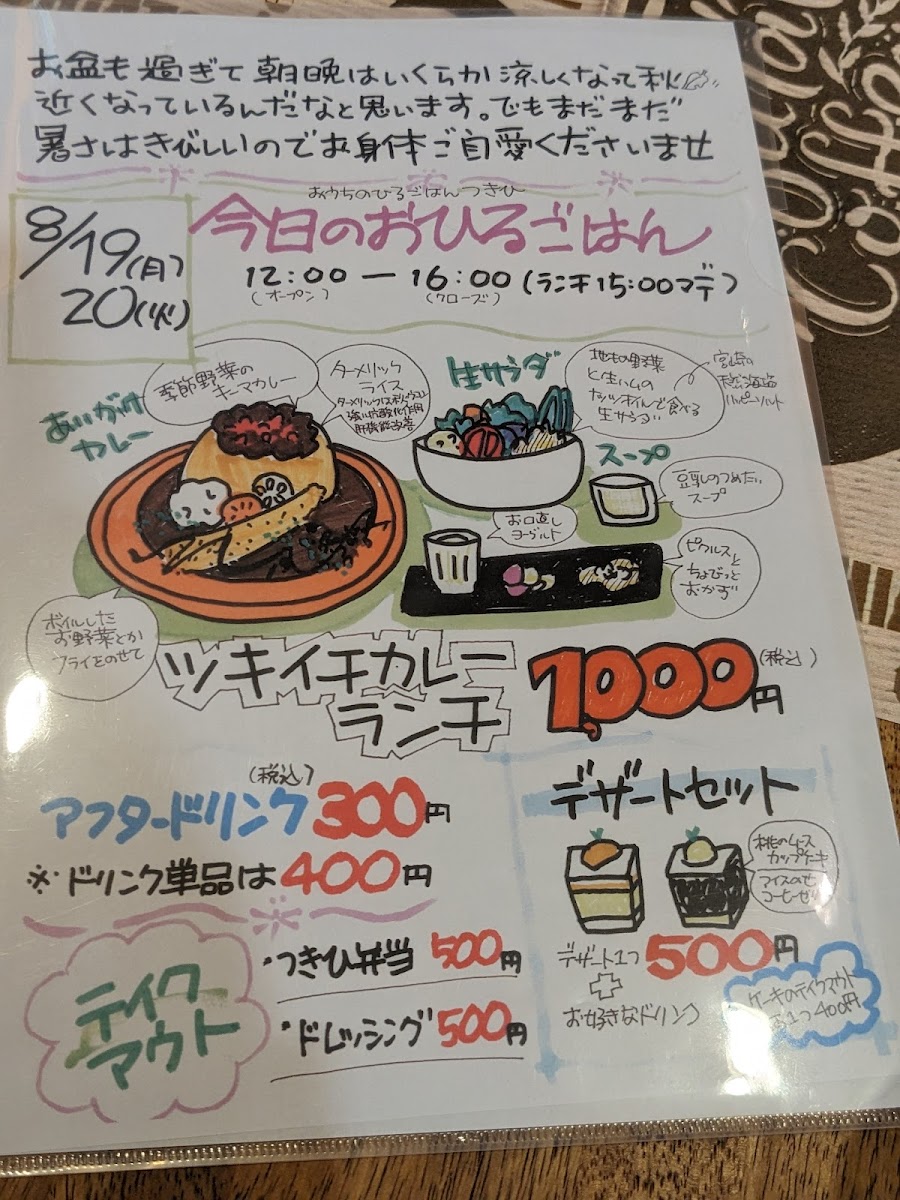 お盆も過ぎて朝晩はいくらか涼しくなって秋
近くなっているんだなと思います。でもまだまだ
暑さはきびしいのでお身体ご自愛くださいませ
おうちのひるごはんつきひ
8/19(月)
20(火)
今日のおひるごはん
12:00 ― 16:00 (ランチ15:00マデ)
(オープン) (クローズ)
あいがけ
カレー
季節野菜の
キーマカレー
ターメリック
ライス
強い抗酸化作用
肝機能改善
生サラダ
地もの野菜
と生ハムの
ナッツオイルで食べる
生サラダ
宮崎の
ハッピーソルト
スープ
豆乳のつめたい
スープ
お口直し
ヨーグルト
ピクルスと
ちょびっと
おかず
ボイルした
お野菜とか
フライをのせて
ツキイチカレー
ランチ
1,000円
(税込)
(税込)
アフタードリンク 300円
※ドリンク単品は400円
デザートセット
桃のムース
カップケーキ
アイスのせ
コーヒーゼリー
デザート1つ 500円
+
お好きなドリンク
ケーキのテイクアウト
1つ400円
テイク
アウト
・つきひ弁当 500円
・ドレッシング 500円
Coffee